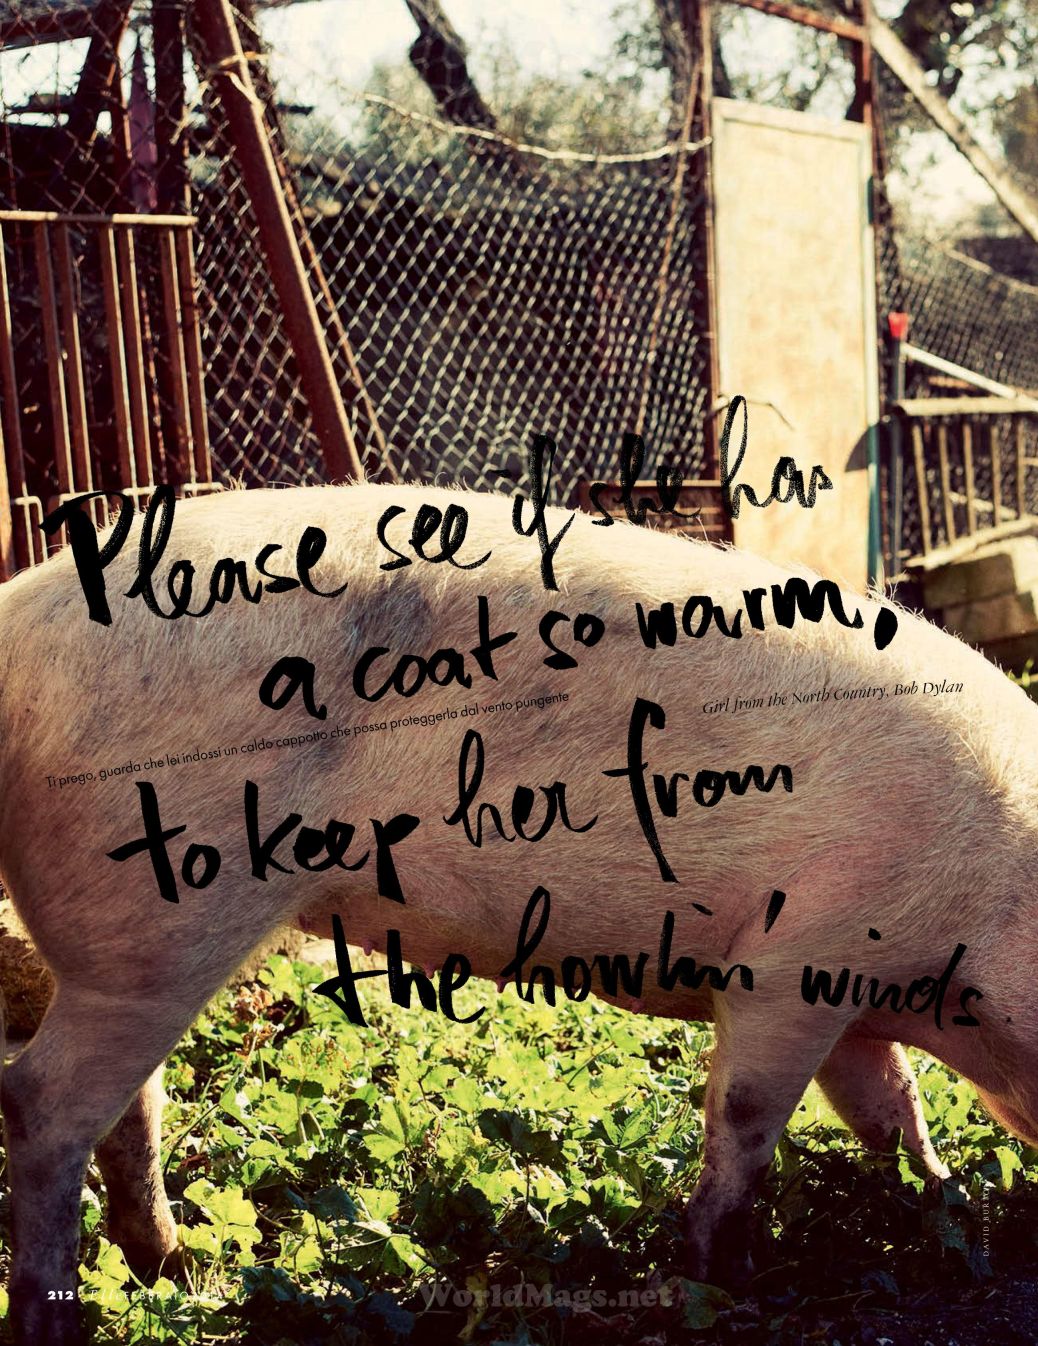 Please see if she has
a coat so warm,
Girl from the North Country, Bob Dylan
Ti prego, guarda che lei indossi un caldo cappotto che possa proteggerla dal vento pungente
to keep her from
the howlin' winds
DAVID BURTON
212 Elle FEBBRAIO
WorldMags.net